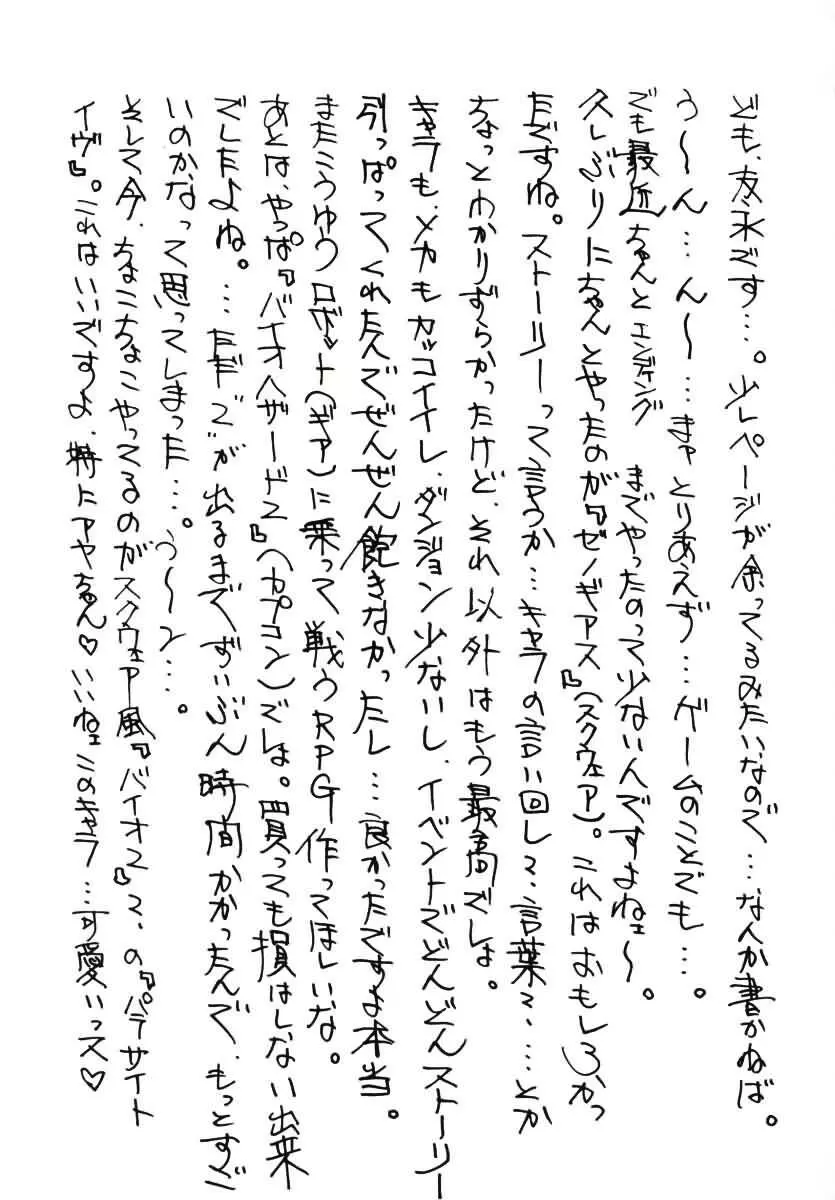 ども、友永です…。少しページが余ってるみたいなので…なんか書かねば。
う〜ん…ん〜…まァとりあえず…ゲームのことでも…。
でも最近ちゃんとエンディングまでやったのって少ないんですよねェ〜。
久しぶりにちゃんとやったのが『ゼノギアス』(スクウェア)。これはおもしろかっ
たですね。ストーリーって言うか…キャラの言い回しと、言葉と、…とか
ちょっとわかりずらかったけど、それ以外はもう最高でしょ。
キャラも、メカもカッコイイし、ダンジョン少ないし、イベントでどんどんストーリー
引っぱってくれたんでぜんぜん飽きなかったし…良かったですよ本当。
またこうゆうロボット(ギア)に乗って戦うRPG作ってほしいな。
あとは、やっぱ『バイオハザード2』(カプコン)でしょ。買っても損はしない出来
でしたよね。…ただ"2"が出るまでずいぶん時間かかったんで、もっとすご
いのかなって思ってしまった…。う〜ン…。
そして今、ちょこちょこやってるのがスクウェア風『バイオ2』と、の『パラサイト
イヴ』。これはいいですよ、特にアヤちゃん♡いいねェこのキャラ…可愛いっス♡